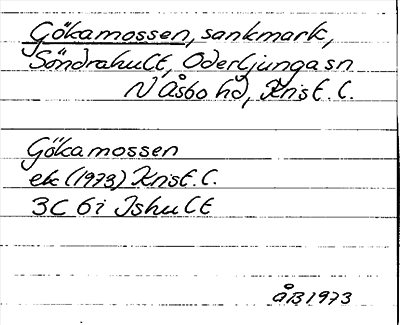 Gökamossen, sankmark,
Söndrahult, Oderljunga sn
N Åsbo hd, Krist. L.
Gökamossen
ek (1973) Krist. L.
3C 6i Ishult
ÅB 1973